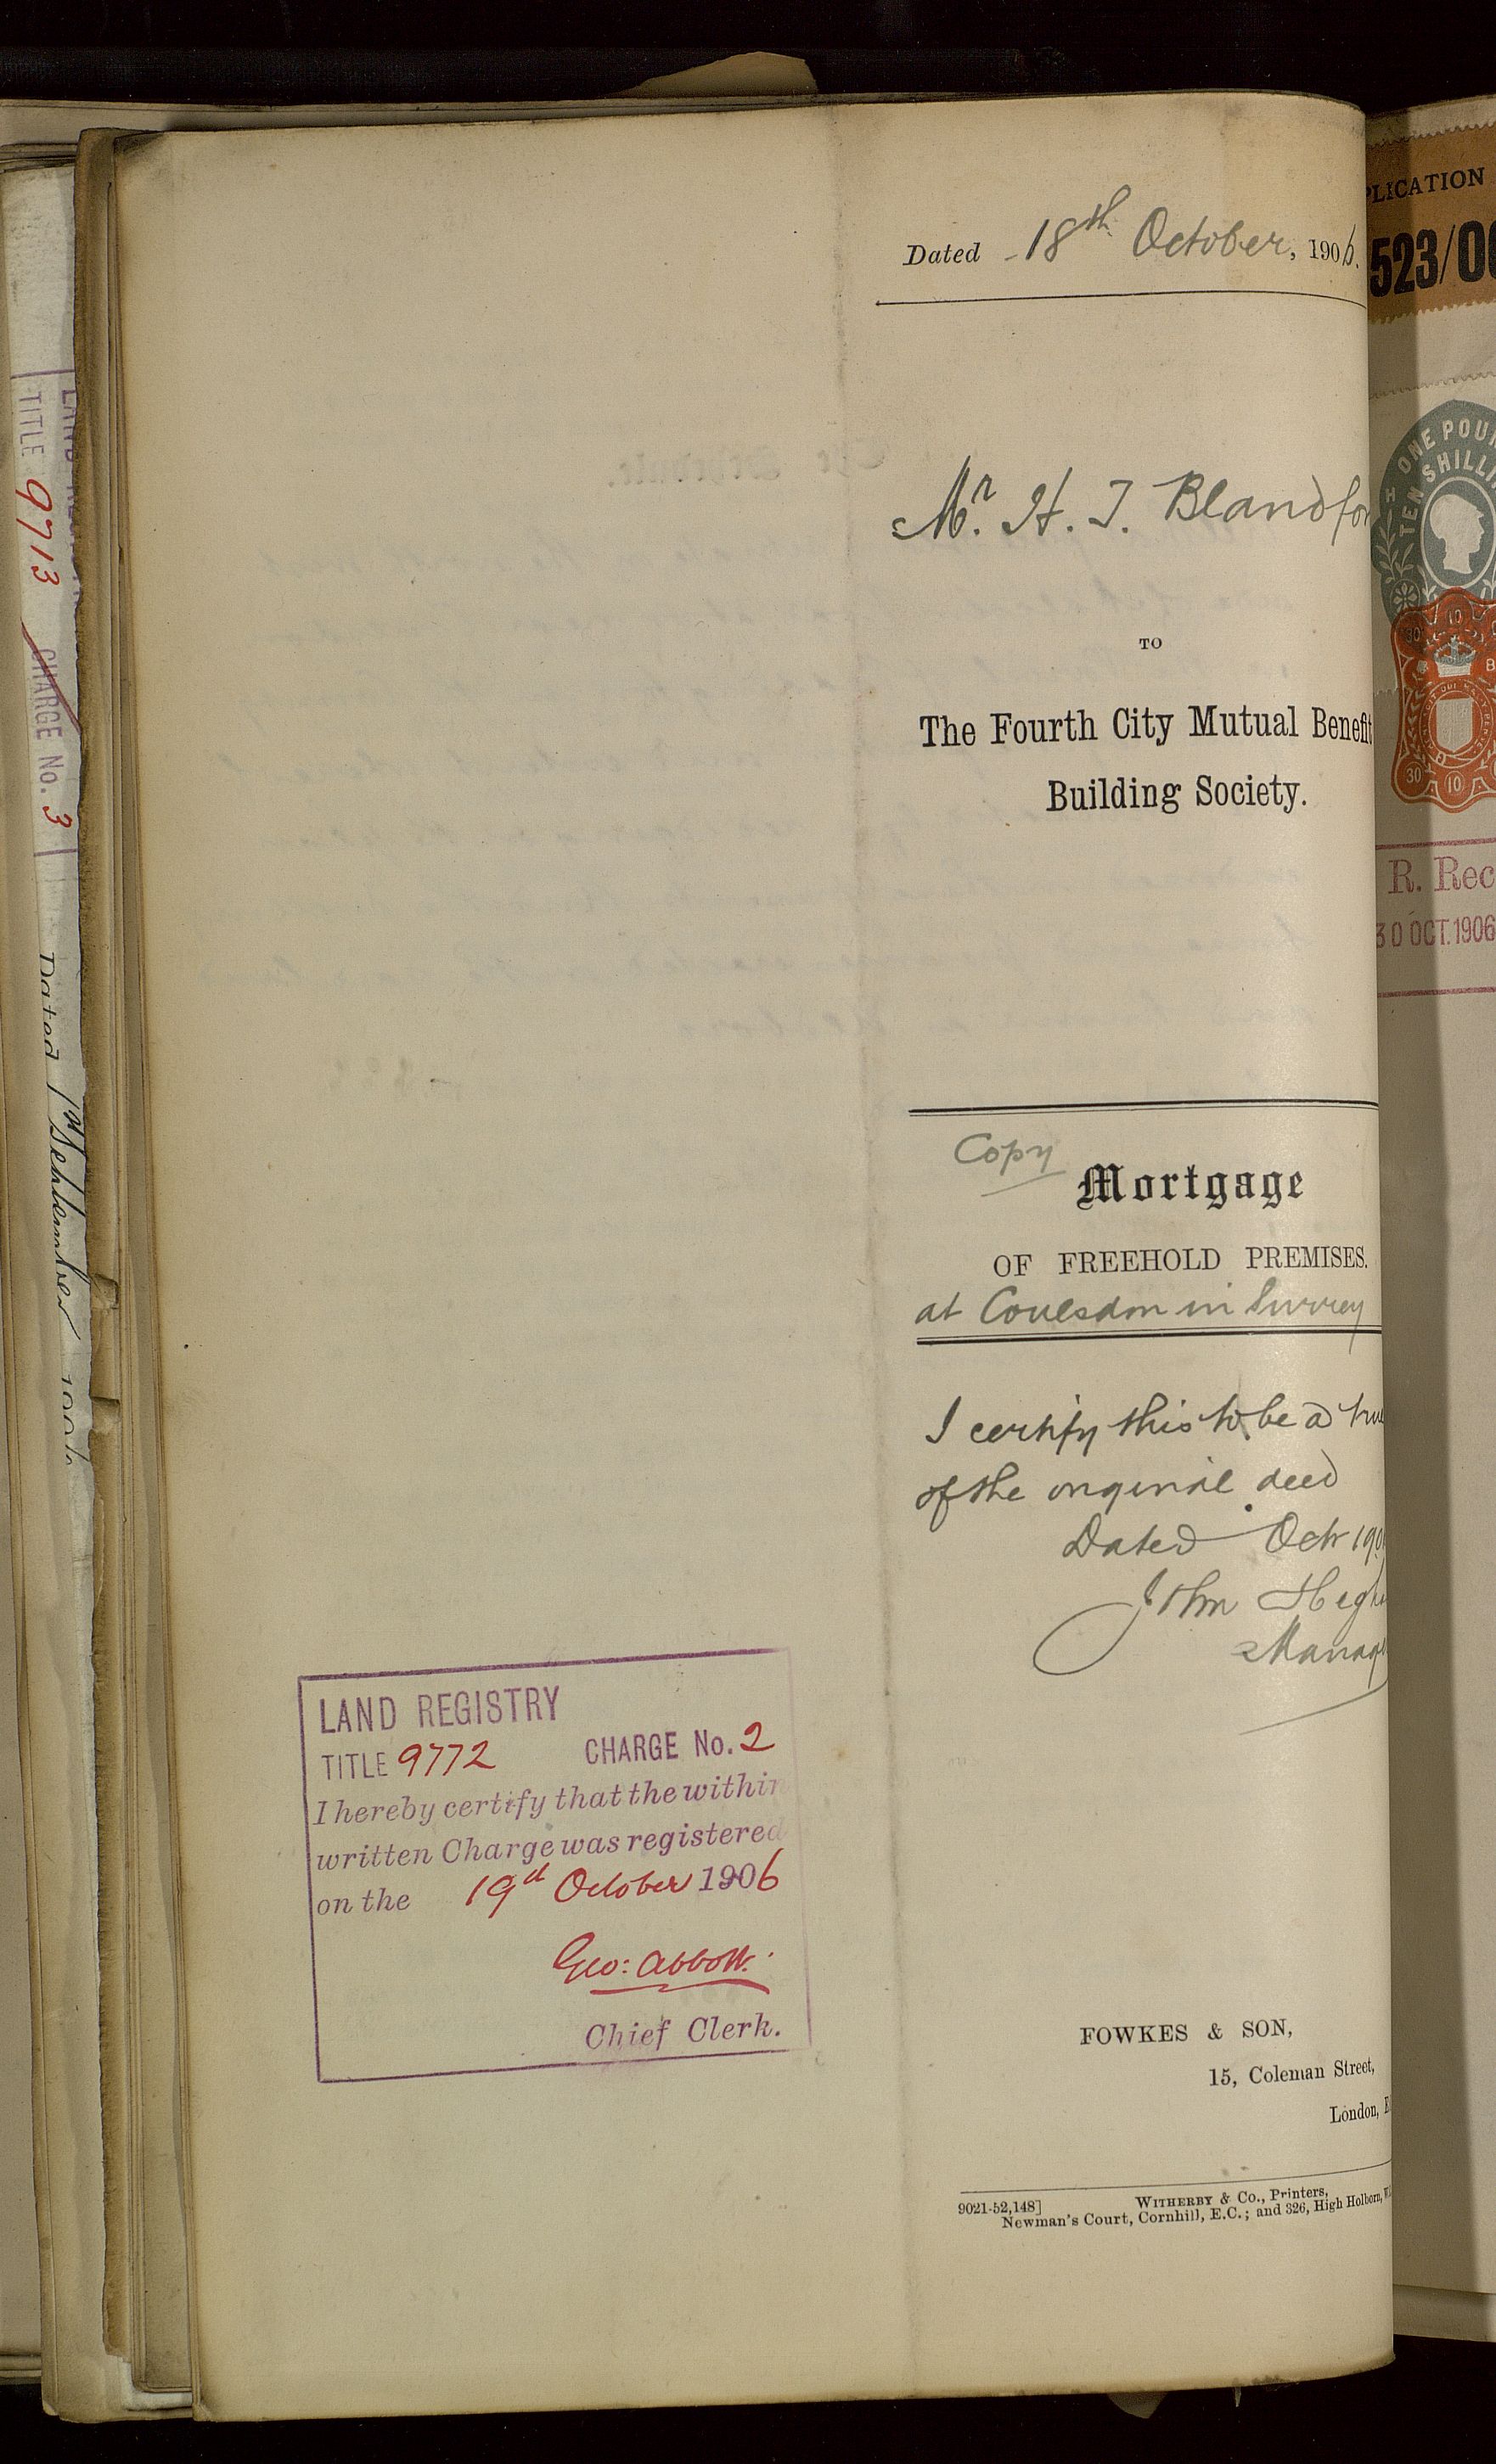 Dated 18th October, 1906.
Mr. H. T. Blandfor
TO
The Fourth City Mutual Benefit
Building Society.
Copy
Mortgage
OF FREEHOLD PREMISES.
at Coulsdon in Surrey
I certify this to be a true
of the original deed
Dated Octr 190
John Hegh
Manag
FOWKES & SON,
15, Coleman Street,
London, E
9021-52,148] WITHERBY & Co., Printers,
Newman's Court, Cornhill, E.C.; and 326, High Holborn, W.
LAND REGISTRY
TITLE 9772 CHARGE No. 2
I hereby certify that the within
written Charge was registered
on the 19th October 1906
Geo: Abbott.
Chief Clerk.
LAND REGISTRY
TITLE 9713 CHARGE No. 3
Dated 1st September 1906
PLICATION
523/06
ONE POUN
TEN SHILLIN
30 10
30 10
R. Rec
30 OCT. 1906